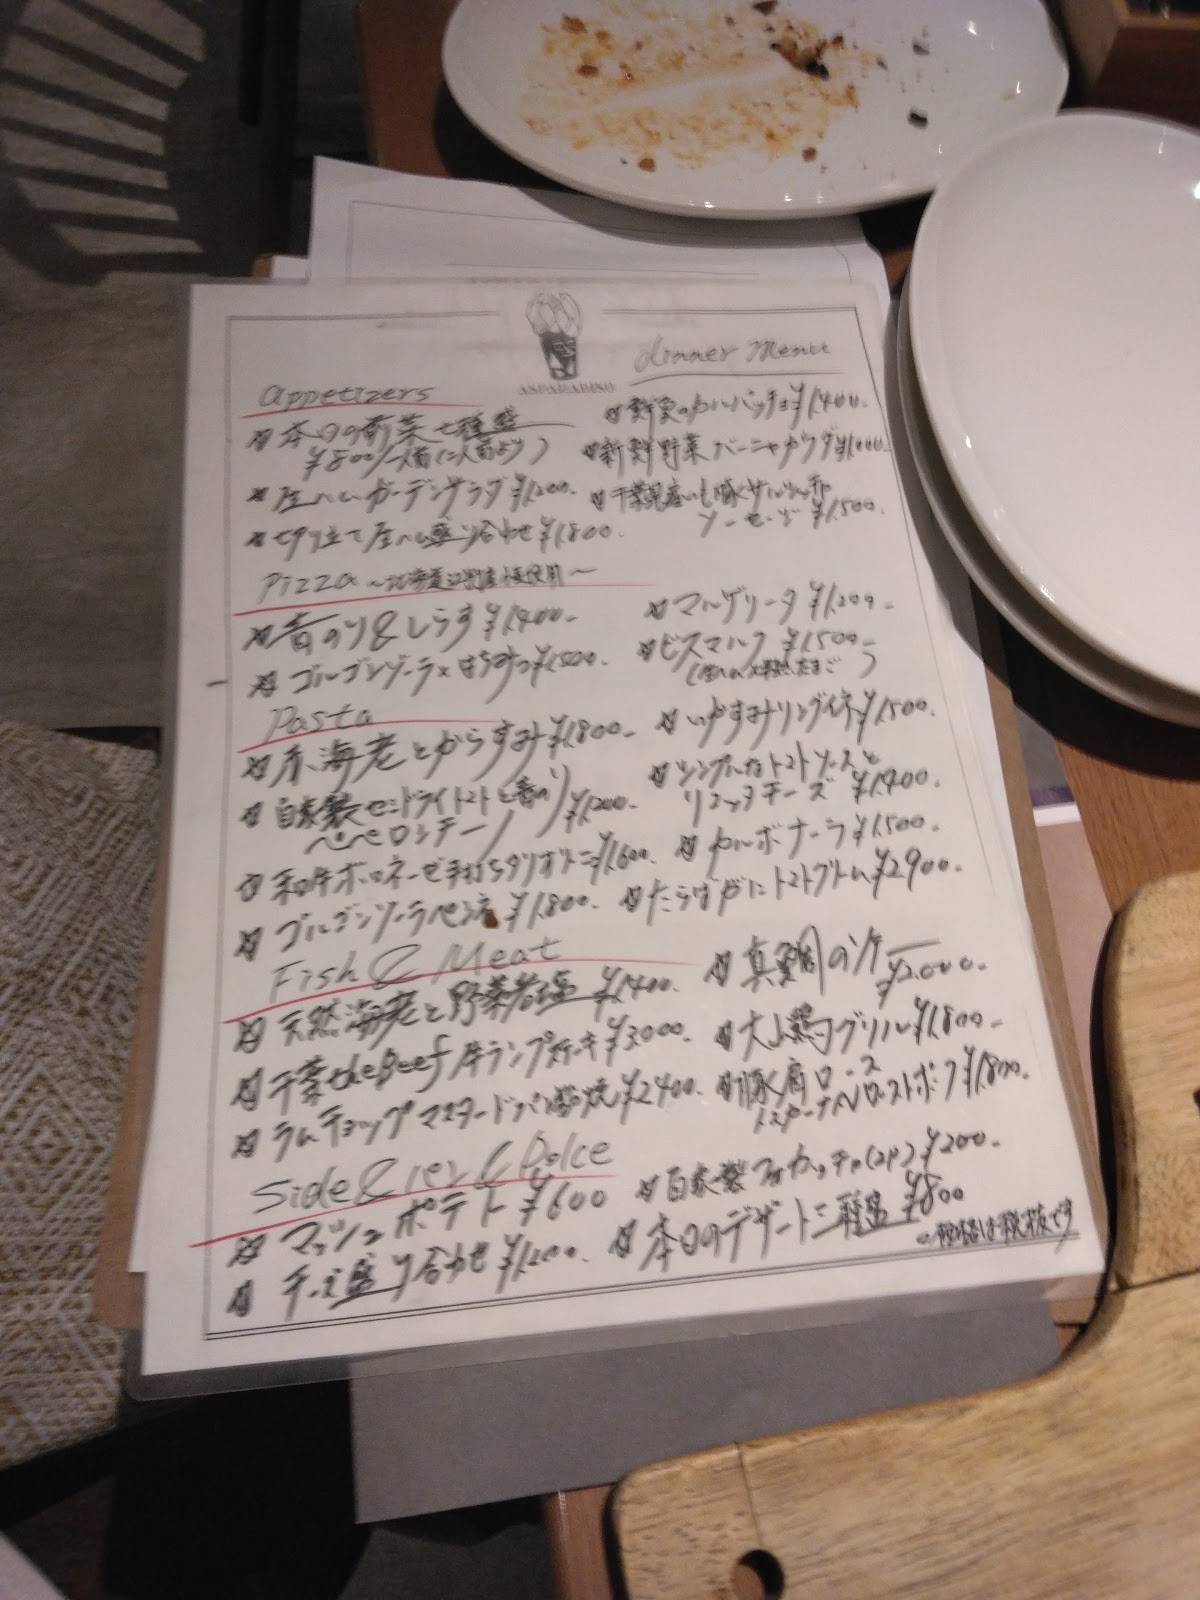 ASPARAGINO
dinner Menu
appetizers
本日の前菜七種盛
¥800/一人前(二人前より)
生ハムガーデンサラダ ¥1,200-
切り立て生ハム盛り合わせ ¥1,800-
鮮魚のカルパッチョ ¥1,400-
新鮮野菜バーニャカウダ ¥1,000-
ソーセージ ¥1,500-
Pizza
青のり&しらす ¥1,400-
ゴルゴンゾーラxはちみつ ¥1,500-
マルゲリータ ¥1,200-
ビスマルク ¥1,500-
Pasta
赤海老とからすみ ¥1,800-
自家製セミドライトマトと青のり
ペペロンチーノ ¥1,200-
和牛ボロネーゼ手打ちタリオリーニ ¥1,600-
ゴルゴンゾーラペンネ ¥1,800-
いかすみリングイネ ¥1,500-
シンプルなトマトソースと
リコッタチーズ ¥1,400-
カルボナーラ ¥1,500-
たらばがにトマトクリーム ¥2,900-
Fish & Meat
天然海老と野菜岩塩 ¥1,400-
千葉the Beef 牛ランプステーキ ¥3,000-
ラムチョップマスタードパン粉焼 ¥2,400-
真鯛のソテー ¥2,000-
大山鶏グリル ¥1,800-
豚肩ロース
ローストポーク ¥1,800-
Side & Dolce
マッシュポテト ¥600
チーズ盛り合わせ ¥1,200-
自家製フォカッチャ(2P) ¥200-
本日のデザート三種盛 ¥800
価格は税抜です